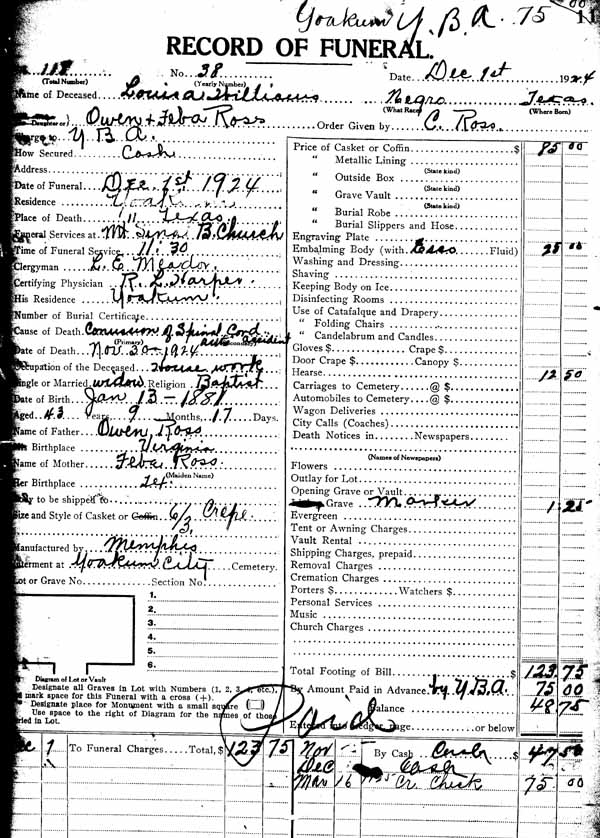 Yoakum Y.B.A. 75
11
RECORD OF FUNERAL.
118 No. 38 Date Dec 1st 1924
(Total Number) (Yearly Number)
Name of Deceased Louisa Williams Negro Texas
(What Race) (Where Born)
Daughter of) Owen + Feba Ross Order Given by C. Ross
Charge to Y.B.A.
How Secured Cash
Address
Date of Funeral Dec. 1st 1924
Residence Yoakum
Place of Death " Texas
Funeral Services at Mt Sinai B. Church
Time of Funeral Service 11:30
Clergyman L. E. Meador
Certifying Physician R. L. Harper
His Residence Yoakum
Number of Burial Certificate
Cause of Death Concussion of Spinal Cord auto accident
(Primary) (Secondary)
Date of Death Nov. 30 - 1924
Occupation of the Deceased House work
Single or Married widow Religion Baptist
Date of Birth Jan 13 - 1881
Aged 43 Years 9 Months, 17 Days.
Name of Father Owen Ross
His Birthplace Virginia
Name of Mother Feba Ross
(Maiden Name)
Her Birthplace Tex.
Body to be shipped to
Size and Style of Casket or Coffin 6/3 Crepe
Manufactured by Memphis
Interment at Yoakum City Cemetery.
Lot or Grave No. Section No.
1.
2.
3.
4.
5.
6.
Diagram of Lot or Vault
Designate all Graves in Lot with Numbers (1, 2, 3, 4, etc.),
mark space for this Funeral with a cross (+).
Designate place for Monument with a small square
Use space to the right of Diagram for the names of those
buried in Lot.
Price of Casket or Coffin $ 85 00
" Metallic Lining
(State kind)
" Outside Box
(State kind)
" Grave Vault
(State kind)
" Burial Robe
" Burial Slippers and Hose
Engraving Plate
Embalming Body (with Esso Fluid) 25 00
Washing and Dressing
Shaving
Keeping Body on Ice
Disinfecting Rooms
Use of Catafalque and Drapery
" Folding Chairs
" Candelabrum and Candles
Gloves $ Crape $
Door Crape $ Canopy $
Hearse 12 50
Carriages to Cemetery @ $
Automobiles to Cemetery @ $
Wagon Deliveries
City Calls (Coaches)
Death Notices in Newspapers
(Names of Newspapers)
Flowers
Outlay for Lot
Opening Grave or Vault
Grave Marker 1 25
Evergreen
Tent or Awning Charges
Vault Rental
Shipping Charges, prepaid
Removal Charges
Cremation Charges
Porters $ Watchers $
Personal Services
Music
Church Charges
Total Footing of Bill $ 123 75
By Amount Paid in Advance by Y.B.A. 75 00
Balance 48 75
Entered into Ledger, page or below
Paid
Dec 1 To Funeral Charges Total, $ 123 75 Nov By Cash Cash $ 47 50
Dec Cash
Mar 16 Cr. Check 75 00